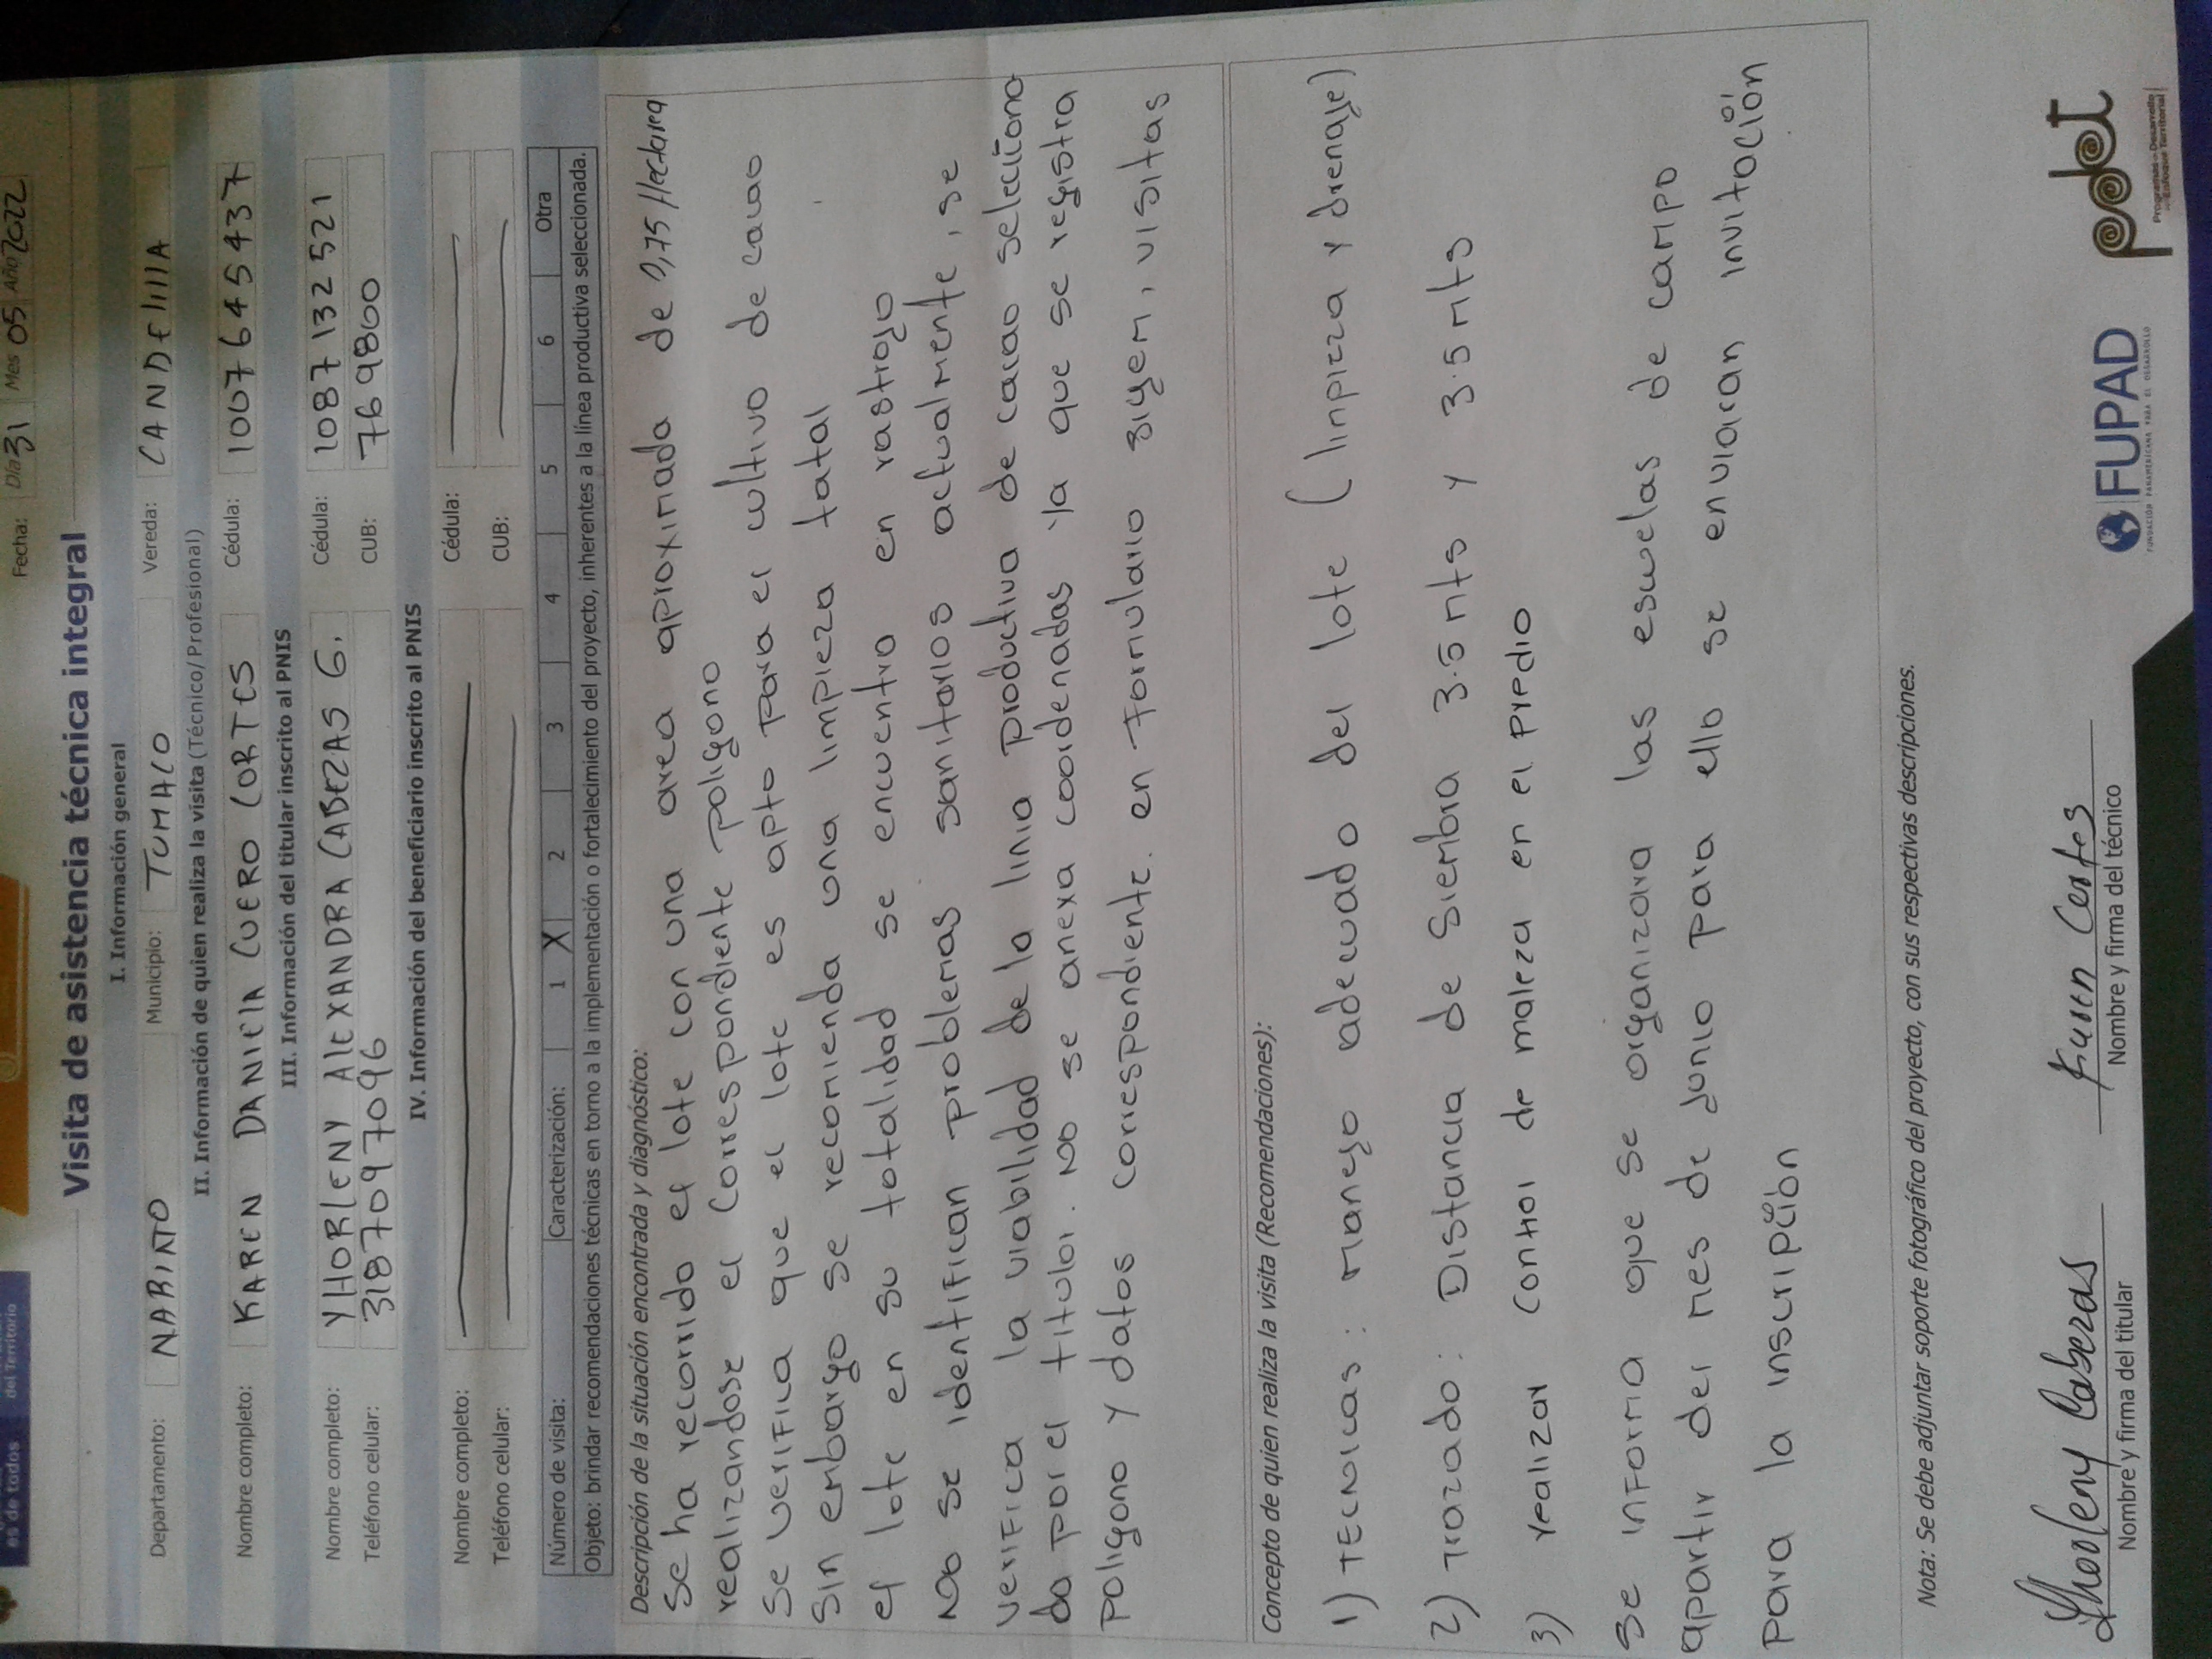 es de todos del Territorio
Fecha: Día 31 Mes 05 Año 2022
Visita de asistencia técnica integral
I. Información general
Departamento: NARIÑO Municipio: TUMACO Vereda: CANDElIllA
II. Información de quien realiza la visita (Técnico/Profesional)
Nombre completo: KAREN DANIElA CUERO CORTES Cédula: 1007645437
III. Información del titular inscrito al PNIS
Nombre completo: YHORlENY AlEXANDRA CABEZAS G. Cédula: 1087132521
Teléfono celular: 3187097096 CUB: 7698
IV. Información del beneficiario inscrito al PNIS
Nombre completo: Cédula:
Teléfono celular: CUB:
Número de visita: Caracterización: 1 X 2 3 4 5 6 Otra
Objeto: brindar recomendaciones técnicas en torno a la implementación o fortalecimiento del proyecto, inherentes a la línea productiva seleccionada.
Descripción de la situación encontrada y diagnóstico:
Se ha recorrido el lote con una area aproximada de 0,75 Hectarea
realizandose el correspondiente poligono
Se verifica que el lote es apto para el cultivo de cacao
Sin embargo se recomienda una limpieza total
el lote en su totalidad se encuentra en rastrojo
No se identifican problemas sanitarios actualmente, se
verifica la viabilidad de la linia productiva de cacao selecciona
da por el titular. No se anexa coordenadas ya que se registra
poligono y datos correspondiente. en formulario sigem, visitas
Concepto de quien realiza la visita (Recomendaciones):
1) TECNICAS: Manejo adecuado del lote (limpieza y drenaje)
2) Trazado: Distancia de Siembra 3.5 mts y 3.5 mts
3) realizar control de maleza en el predio
Se informa que se organizara las escuelas de campo
apartir del mes de Junio para ello se enviaran invitación
para la inscripción
Nota: Se debe adjuntar soporte fotográfico del proyecto, con sus respectivas descripciones.
Yhorleny Cabezas
Nombre y firma del titular
Karen Cortes
Nombre y firma del técnico
FUPAD
FUNDACIÓN PANAMERICANA PARA EL DESARROLLO
pdet
Programas de Desarrollo
con Enfoque Territorial